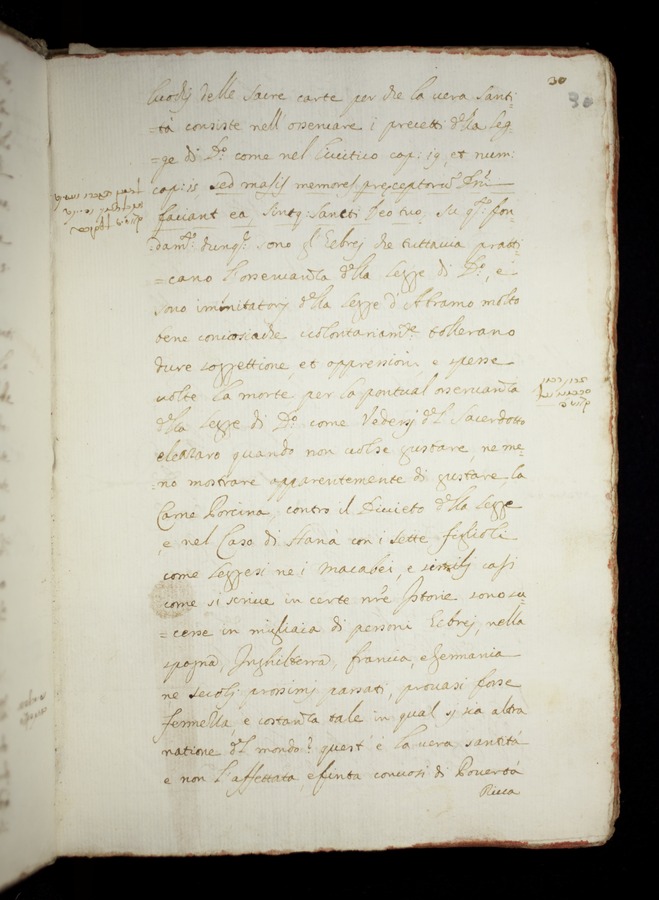 30
30
luochi delle sacre carte per che la vera santi:
=tà consiste nell' osservare i precetti d'lla leg:
=ge di D.º come nel Levitico cap: 19, et num:
cap: 15 sed magis memores preceptorũ Dñi
faciant ea, sintq; sancti Deo tuo, su q.º fon:
:dam.to dunq.e sono gl' Eebrej che tuttavia pratti:
=cano l'osservanza d'lla legge di D.º, e
sono immitatorj d'lla legge d' Abramo molto
bene conciosiache volontariam.te tollerano
dure soggettione, et oppressioni, e spesse
volte la morte per la pontual osservanza
d'lla legge di D.º come vedesj d'l Sacerdotto
eleazaro quando non volse gustare, ne me:
:no mostrare apparentemente di gustare la
Carne Porcina, contro il Divieto d'lla legge
, e nel Caso di Hanà con i sette figlioli
come leggesi ne i Macabei, e similj casi
come si scrive in certe nr̃e Istorie sono su:
=cesse in migliaia di personi Eebrej, nella
spagna, Inghilterra, francia, e Germania
ne secolj prossimj passati, provasi forse
fermezza, e costanza tale in qual si sia altra
natione d'l mondo? quest' è la vera santità
e non l'affettata, e finta con voti di Povertà
Ricca